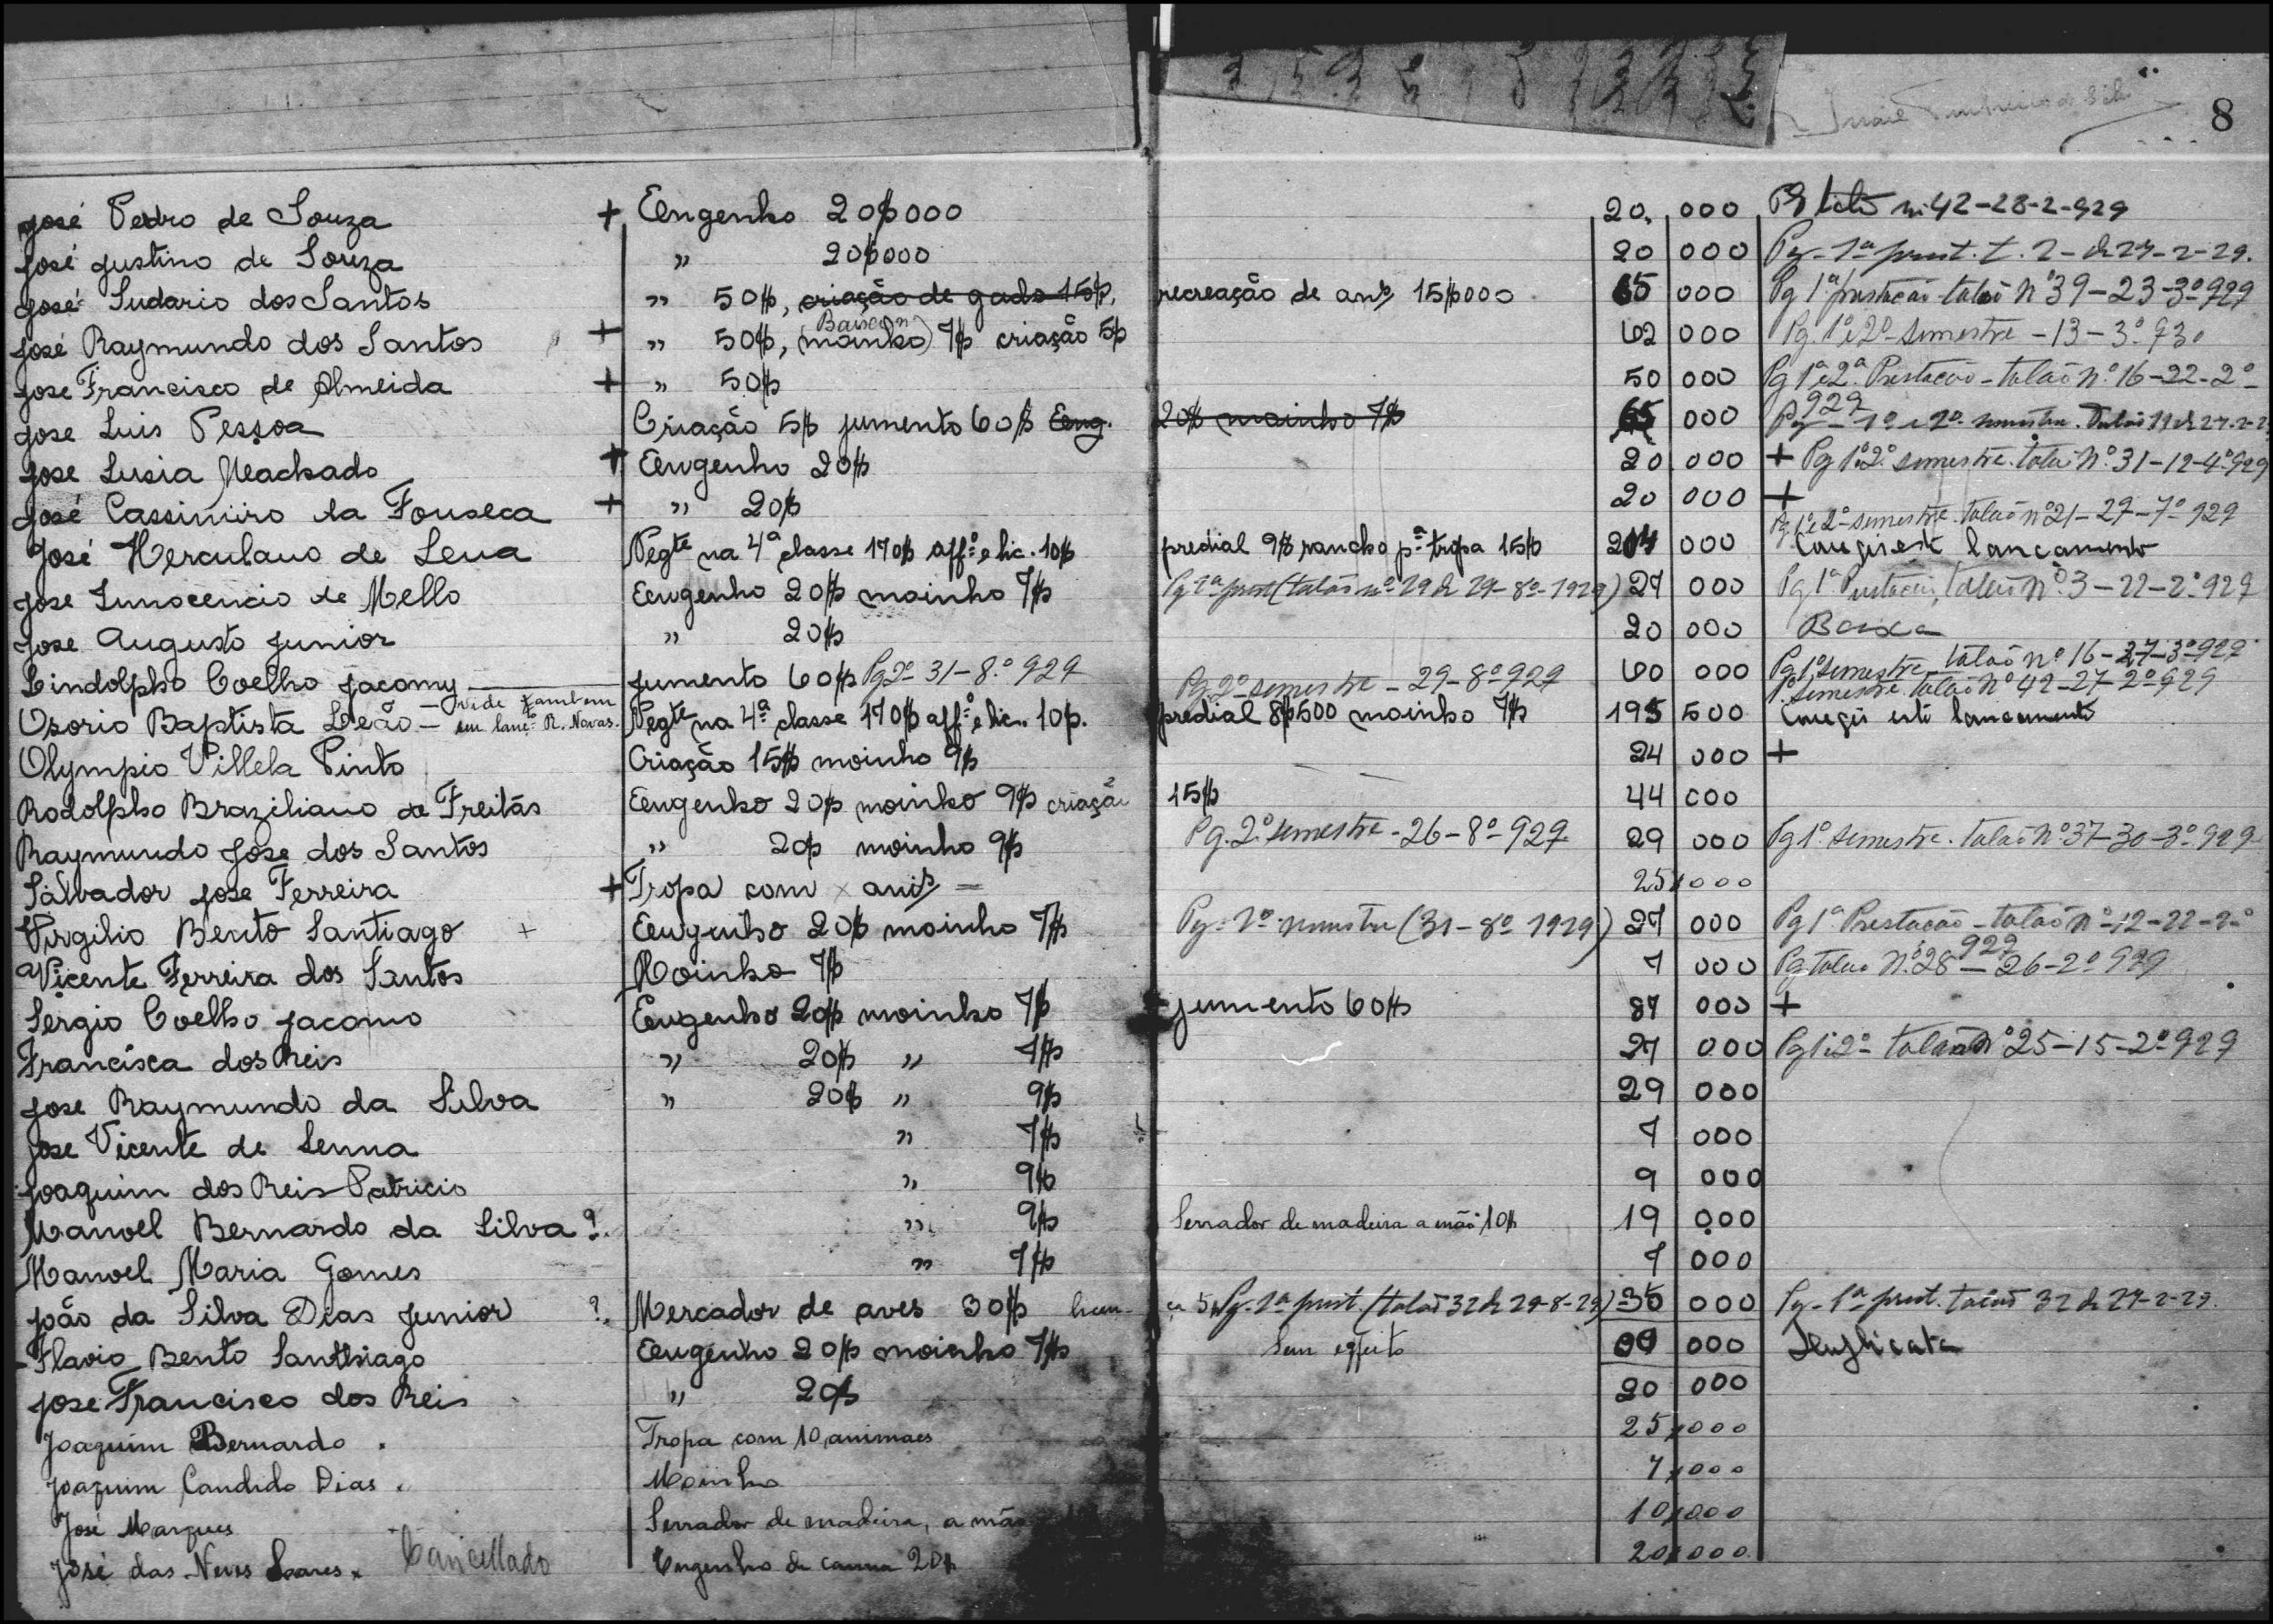 8
José Pedro de Souza + Engenho 20$000 20 000 Pg talão nº 42-28-2-929
José Justino de Souza " 20$000 20 000 Pg-1ª prest. t. 2-de 27-2-29.
José Sudario dos Santos " 50$, criação de gado 15$, recreação de ani$ 15$000 65 000 Pg 1ª prestação talão Nº 39-23-3º 929
José Raymundo dos Santos + " 50$, (moinho) 7$ criação 5$ 62 000 Pg. 1º e 2º semestre-13-3º 930
Baixa
José Francisco de Almeida + " 50$ 50 000 Pg 1ª e 2ª Prestação-talão Nº 16-22-2º-
929
José Luis Pessoa Criação 5$ jumento 60$ Eng. 20$ moinho 7$ 65 000 Pg-1º e 2º
José Lusia Machado + Engenho 20$ 20 000 + Pg 1º 2º semestre. talão Nº 31-12-4º 929
José Cassimiro da Fonseca + " 20$ 20 000 +
Pg. 1º e 2º semestre. talão nº 21-27-7º 929
José Herculano de Lena Negte na 4ª classe 170$ affº e lic. 10$ predial 9$ rancho pª tropa 15$ 204 000 lançamento
José Innocencio de Mello Engenho 20$ moinho 7$ Pg 2ª prest (talão nº 29 de 29-8º-1929) 27 000 Pg 1ª Prestação, talão Nº 3-22-2º 929
José Augusto Junior " 20$ 20 000 Baixa
Lindolpho Coelho Jacomy jumento 60$ Pg 2º 31-8º 929 60 000 Pg 1º semestre-talão nº 16-27-3º 929
Pg. 2º semestre-29-8º 929 1º semestre. talão Nº 42-27-2º 929
Osorio Baptista Leão - vide tambem em lançto R. Novas. Negte na 4ª classe 170$ affº e lic. 10$. predial 8$500 moinho 7$ 195 500 este lançamento
Olympio Villela Pinto Criação 15$ moinho 9$ 24 000 +
Rodolpho Braziliano de Freitas Engenho 20$ moinho 9$ criação 15$ 44 000
Raymundo José dos Santos " 20$ moinho 9$ Pg. 2º semestre-26-8º 929 29 000 Pg 1º semestre. talão Nº 37-30-3º 929
Salvador José Ferreira + Tropa com x ani$ = 25$000
Virgilio Bento Santiago + Engenho 20$ moinho 7$ Pg-2º semestre (31-8º 1929) 27 000 Pg 1ª Prestação-talão Nº-12-22-2º
929
Vicente Ferreira dos Santos Moinho 7$ 7 000 Pg talão Nº 28-26-2º 929
Sergio Coelho Jacomo Engenho 20$ moinho 7$ jumento 60$ 87 000 +
Francisca dos Reis " 20$ " 7$ 27 000 Pg 1º e 2º talão Nº 25-15-2º 929
José Raymundo da Silva " 20$ " 9$ 29 000
José Vicente de Senna " 7$ 7 000
Joaquim dos Reis Patricio " 9$ 9 000
Manoel Bernardo da Silva ?. " 9$ Serrador de madeira a mão 10$ 19 000
Manoel Maria Gomes " 7$ 7 000
João da Silva Dias Junior ?. Mercador de aves 30$ licença 5$ Pg-2ª prest. (talão 32 de 29-8-29) 35 000 Pg-1ª prest. talão 32 de 27-2-29.
Flavio Bento Santhiago Engenho 20$ moinho 7$ Sem effeito 00 000 Duplicata
José Francisco dos Reis " 20$ 20 000
Joaquim Bernardo. Tropa com 10 animaes 25$000
Joaquim Candido Dias. Moinho 7$000
José Marques Serrador de madeira, a mão 10$000
José das Neves Soares. Cancellado Engenho de canna 20$ 20$000